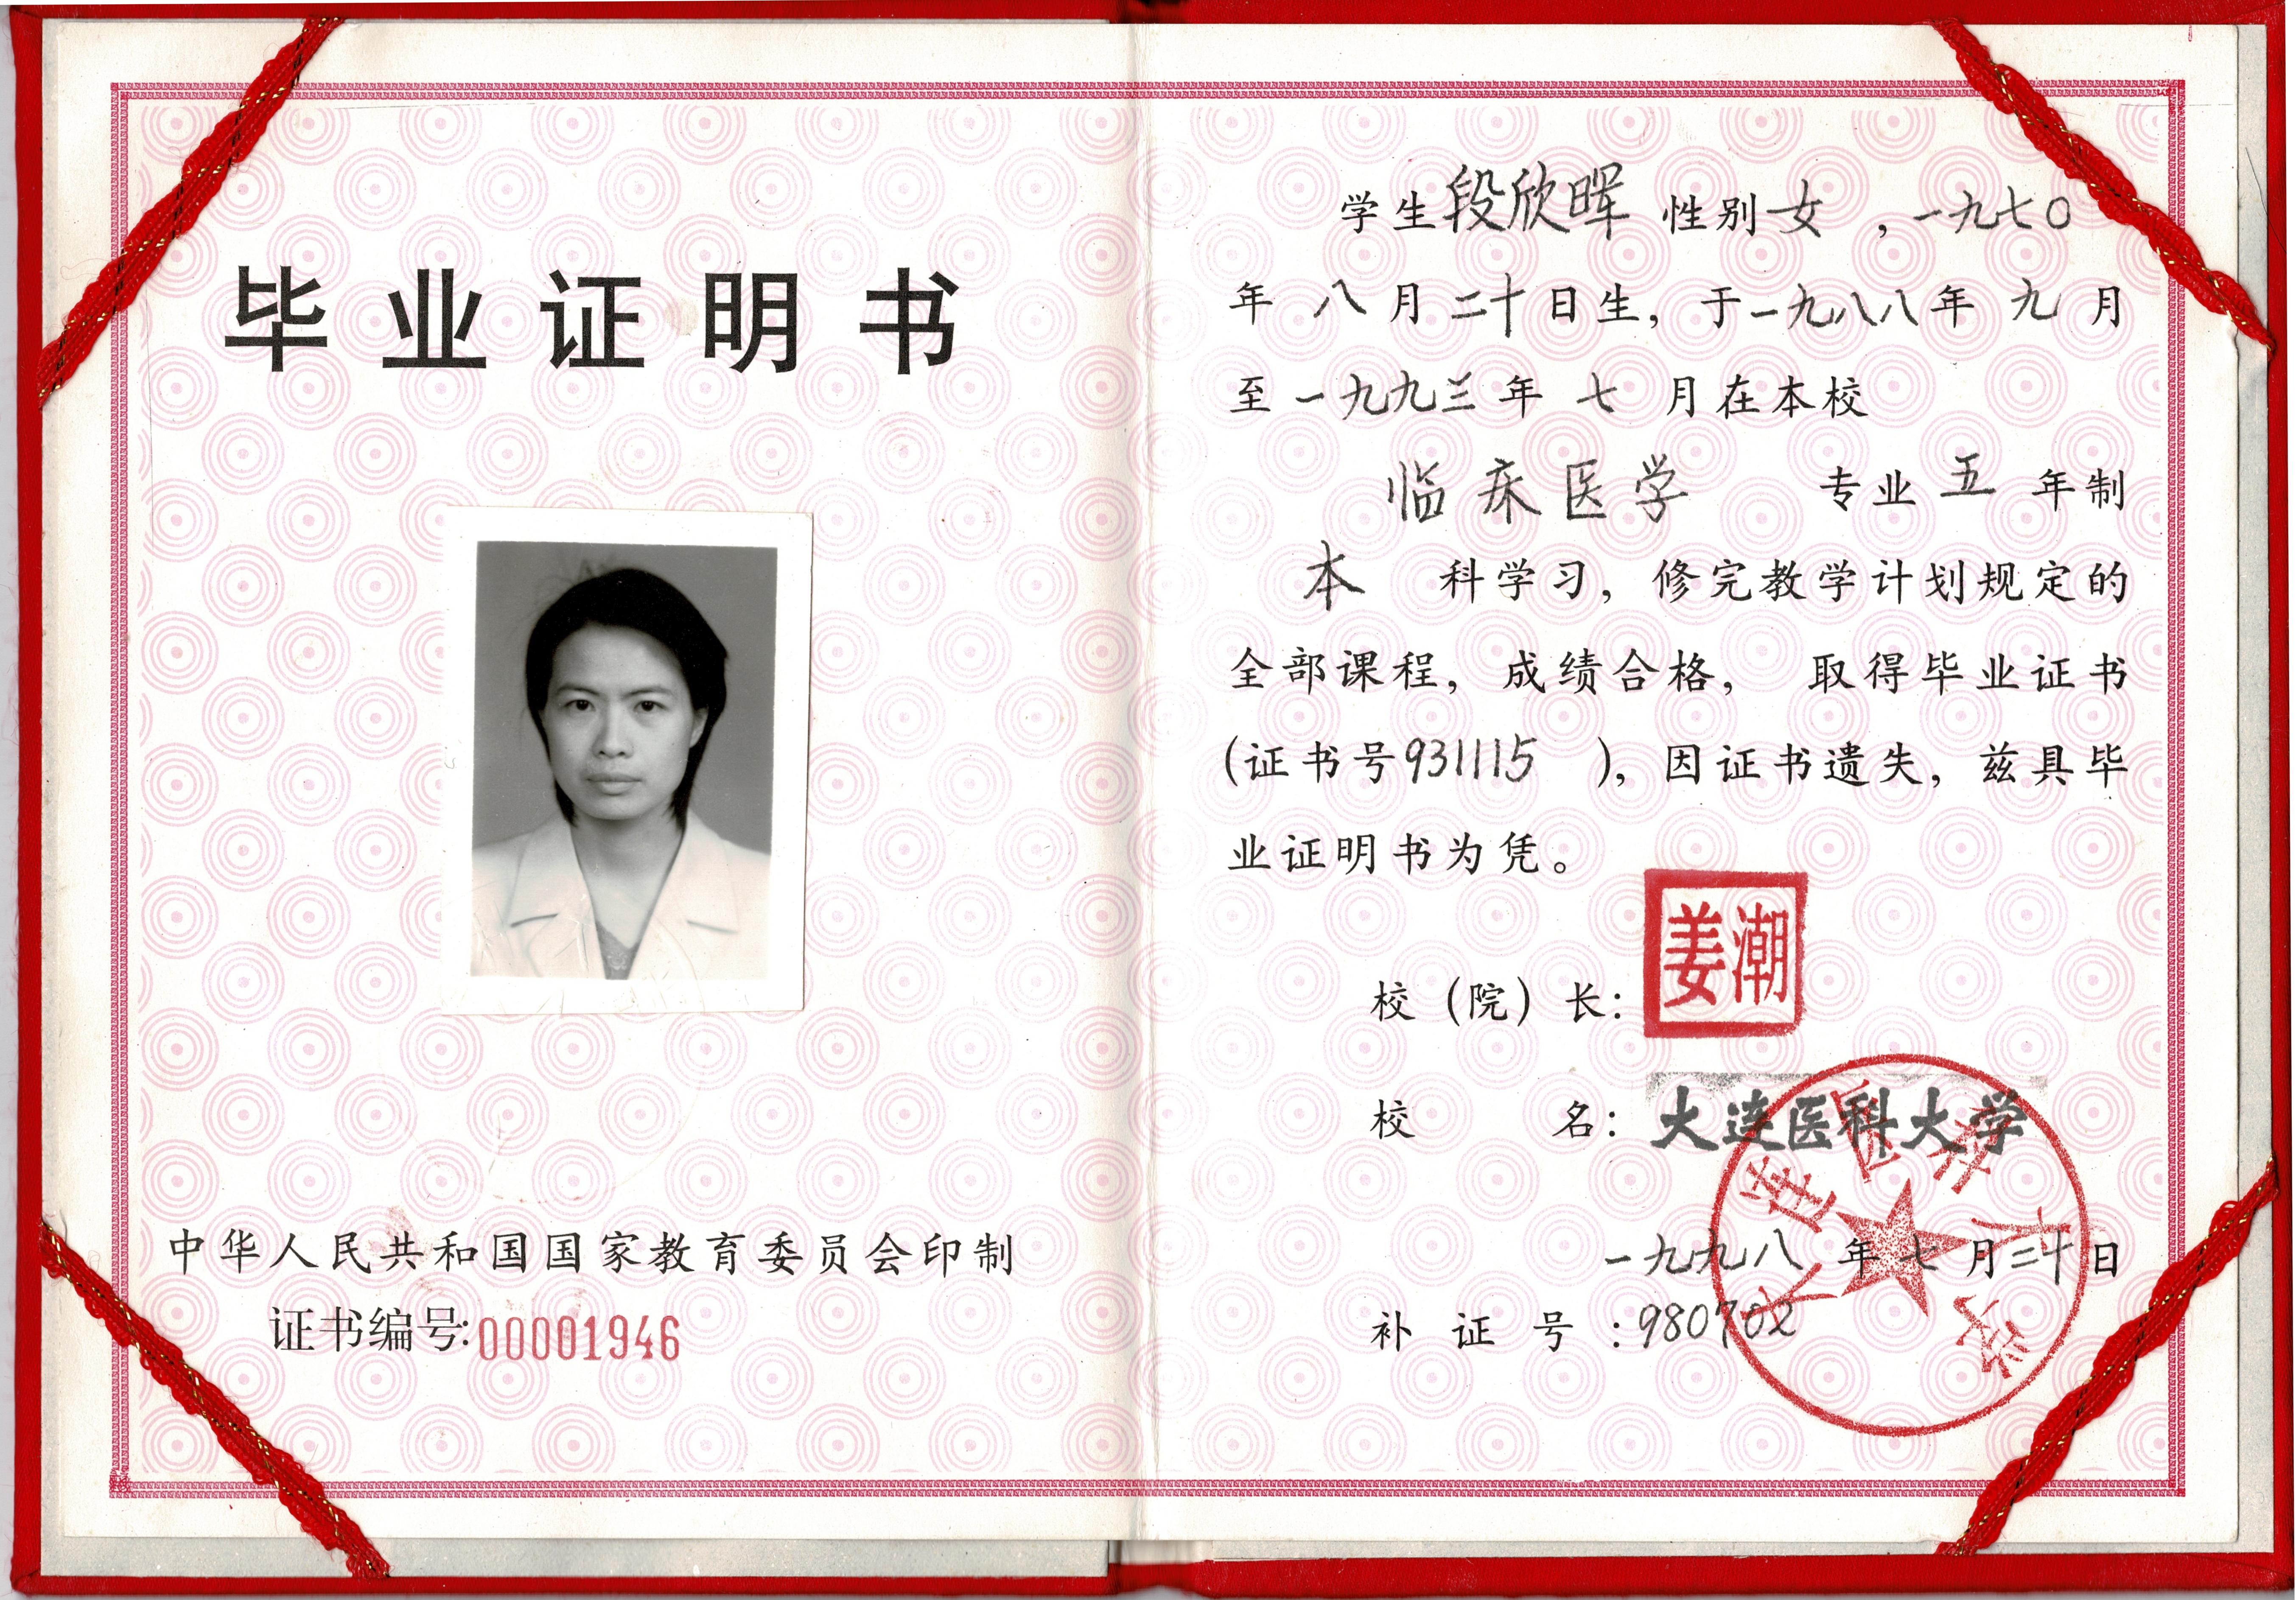 毕业证明书
中华人民共和国国家教育委员会印制
证书编号:00001946
学生段欣晖 性别女 ,一九七〇
年 八月二十日生，于一九八八年 九月
至一九九三年 七 月在本校
临床医学 专业五年制
本 科学习，修完教学计划规定的
全部课程，成绩合格， 取得毕业证书
(证书号931115 )，因证书遗失，兹具毕
业证明书为凭。
校（院）长：
姜潮
校 名：大连医科大学
大连医科大学
一九九八年七月二十日
补证号:980702